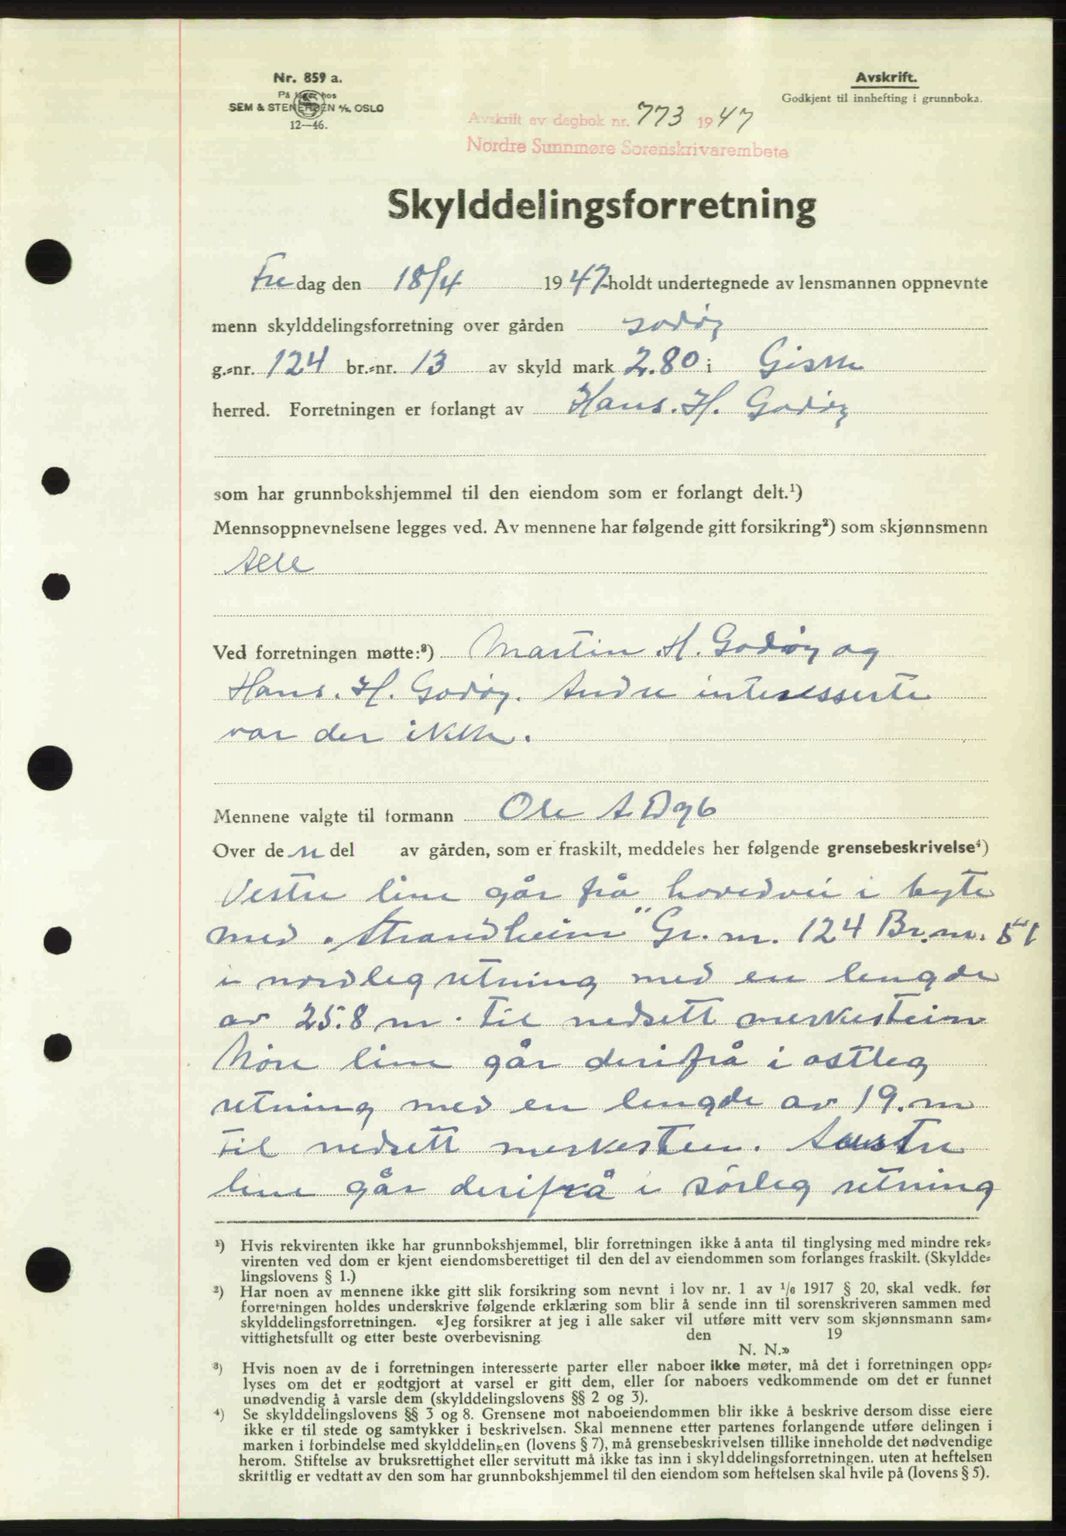 Nr. 859 a.
På lager hos
SEM & STENERSEN A/S, OSLO
12—46.
Avskrift.
Godkjent til innhefting i grunnboka.
Avskrift av dagbok nr. 773 1947
Nordre Sunnmøre Sorenskrivarembete
Skylddelingsforretning
Fredag den 18/4 1947 holdt undertegnede av lensmannen oppnevnte
menn skylddelingsforretning over gården Godøy
g.-nr. 124 br.-nr. 13 av skyld mark 2.80 i Giske
herred. Forretningen er forlangt av Hans. H. Godøy
som har grunnbokshjemmel til den eiendom som er forlangt delt.¹)
Mennsoppnevnelsene legges ved. Av mennene har følgende gitt forsikring²) som skjønnsmenn
Alle
Ved forretningen møtte:³) Martin H. Godøy og
Hans. H. Godøy. Andre interesserte
var der ikke.
Mennene valgte til formann Ole A Dyb
Over den del av gården, som er fraskilt, meddeles her følgende grensebeskrivelse⁴)
Vestre line går frå hovedvei i byte
med „Strandheim" Gr. nr. 124 Br. nr. 51
i nordleg retning med en lengde
av 25.8 m. til nedsett merkestein
Nøre line går derifrå i ostleg
retning med en lengde av 19. m
til nedsett merkestein. Austre
line går derifrå i sørleg retning
¹) Hvis rekvirenten ikke har grunnbokshjemmel, blir forretningen ikke å anta til tinglysing med mindre rek-
virenten ved dom er kjent eiendomsberettiget til den del av eiendommen som forlanges fraskilt. (Skyldde-
lingslovens § 1.)
²) Har noen av mennene ikke gitt slik forsikring som nevnt i lov nr. 1 av 1/6 1917 § 20, skal vedk. før
forretningen holdes underskrive følgende erklæring som blir å sende inn til sorenskriveren sammen med
skylddelingsforretningen. «Jeg forsikrer at jeg i alle saker vil utføre mitt verv som skjønnsmann sam-
vittighetsfullt og etter beste overbevisning den 19
N. N.»
³) Hvis noen av de i forretningen interesserte parter eller naboer ikke møter, må det i forretningen opp-
lyses om det er godtgjort at varsel er gitt dem, eller for naboers vedkommende om det er funnet
unødvendig å varsle dem (skylddelingslovens §§ 2 og 3).
⁴) Se skylddelingslovens §§ 3 og 8. Grensene mot naboeiendommen blir ikke å beskrive dersom disse eiere
ikke er til stede og samtykker i beskrivelsen. Skal mennene etter partenes forlangende utføre delingen i
marken i forbindelse med skylddelingen (lovens § 7), må grensebeskrivelsen tillike inneholde det nødvendige
herom. Stiftelse av bruksrettighet eller servitutt må ikke tas inn i skylddelingsforretningen. uten at heftelsen
skriftlig er vedtatt av den som har grunnbokshjemmel til den eiendom som heftelsen skal hvile på (lovens § 5).